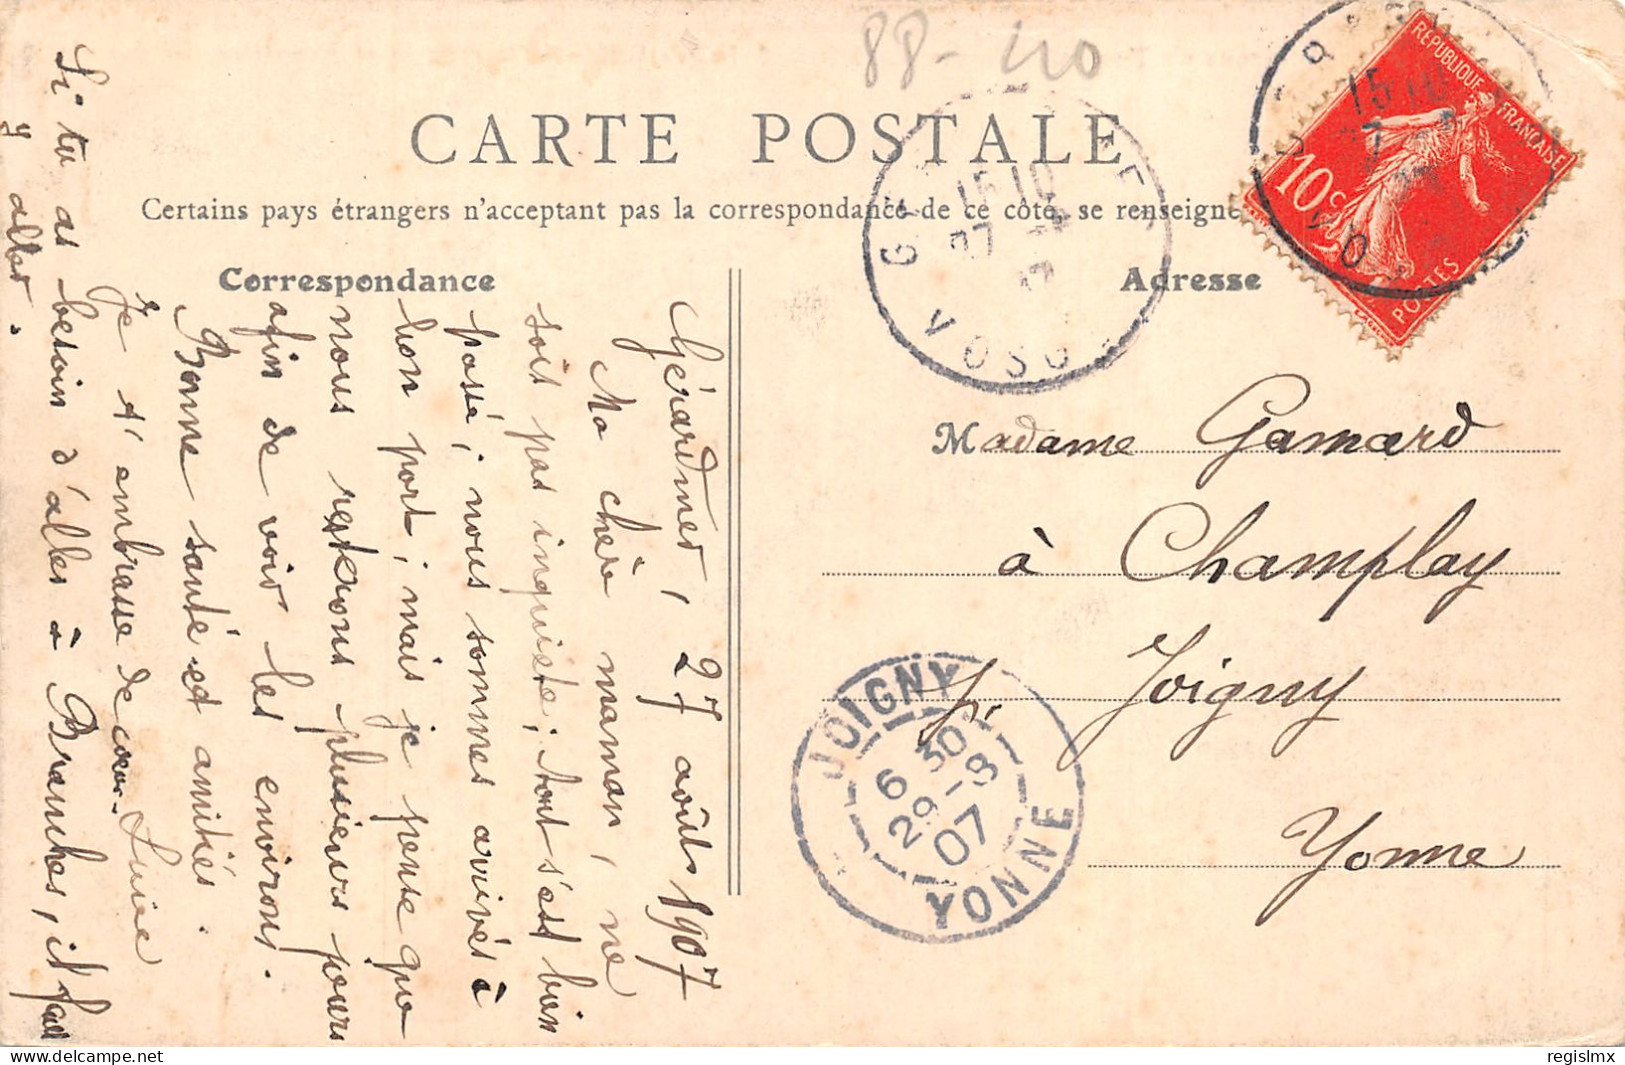 88-40
CARTE POSTALE
Certains pays étrangers n'acceptent pas la correspondance de ce côté, se renseigne
Correspondance
Adresse
RÉPUBLIQUE FRANÇAISE
10c
POSTES
15 10
27
VOSGES
15 10
27
VOSG
Gérardmer, 27 août 1907
Ma chère maman, ne
sois pas inquiète, tout s'est bien
passé, nous sommes arrivés à
bon port, mais je pense que
nous resterons plusieurs jours
afin de voir les environs.
Bonne santé et amitiés.
Je t'embrasse de cœur.
Si tu as besoin d'aller à Branches, il faut
y aller.
Madame Gamard
à Champlay
p. Joigny
Yonne
JOIGNY
6 30
29-8
07
YONNE
Delcampe.net
regislmx